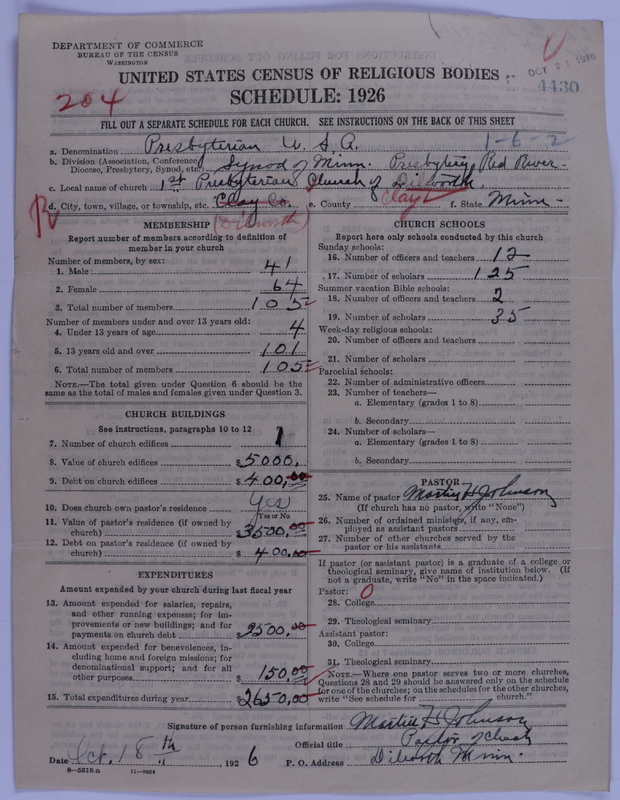 DEPARTMENT OF COMMERCE
BUREAU OF THE CENSUS
WASHINGTON
OCT 21 1926
4430
UNITED STATES CENSUS OF RELIGIOUS BODIES
204
SCHEDULE: 1926
FILL OUT A SEPARATE SCHEDULE FOR EACH CHURCH. SEE INSTRUCTIONS ON THE BACK OF THIS SHEET
1-6-2
a. Denomination Presbyterian U. S. A.
b. Division (Association, Conference, Diocese, Presbytery, Synod, etc.) Synod of Minn. Presbytery Red River
c. Local name of church 1st Presbyterian Church of Dilworth.
d. City, town, village, or township, etc. Clay Co. e. County Clay f. State Minn
(Dilworth)
MEMBERSHIP
Report number of members according to definition of
member in your church
Number of members, by sex:
1. Male 41
2. Female 64
3. Total number of members 105
Number of members under and over 13 years old:
4. Under 13 years of age 4
5. 13 years old and over 101
6. Total number of members 105
NOTE.—The total given under Question 6 should be the
same as the total of males and females given under Question 3.
CHURCH BUILDINGS
See instructions, paragraphs 10 to 12
7. Number of church edifices 1
8. Value of church edifices $5000.
9. Debt on church edifices $400.00
10. Does church own pastor's residence Yes
Yes or No
11. Value of pastor's residence (if owned by
church) $3500.00
12. Debt on pastor's residence (if owned by
church) $400.00
EXPENDITURES
Amount expended by your church during last fiscal year
13. Amount expended for salaries, repairs,
and other running expenses; for im-
provements or new buildings; and for
payments on church debt $2500.00
14. Amount expended for benevolences, in-
cluding home and foreign missions; for
denominational support; and for all
other purposes $150.00
15. Total expenditures during year $2650.00
CHURCH SCHOOLS
Report here only schools conducted by this church
Sunday schools:
16. Number of officers and teachers 12
17. Number of scholars 125
Summer vacation Bible schools:
18. Number of officers and teachers 2
19. Number of scholars 35
Week-day religious schools:
20. Number of officers and teachers
21. Number of scholars
Parochial schools:
22. Number of administrative officers
23. Number of teachers—
a. Elementary (grades 1 to 8)
b. Secondary
24. Number of scholars—
a. Elementary (grades 1 to 8)
b. Secondary
PASTOR
25. Name of pastor Martin H Johnson
(If church has no pastor, write "None")
26. Number of ordained ministers, if any, em-
ployed as assistant pastors
27. Number of other churches served by the
pastor or his assistants
If pastor (or assistant pastor) is a graduate of a college or
theological seminary, give name of institution below. (If
not a graduate, write "No" in the space indicated.)
Pastor: 0
28. College
29. Theological seminary
Assistant pastor:
30. College
31. Theological seminary
NOTE.—Where one pastor serves two or more churches,
Questions 28 and 29 should be answered only on the schedule
for one of the churches; on the schedules for the other churches,
write "See schedule for church."
Signature of person furnishing information Martin H Johnson
Official title Pastor of church
Date Oct. 18th 1926 P. O. Address Dilworth Minn.
8-5518a 11-9024